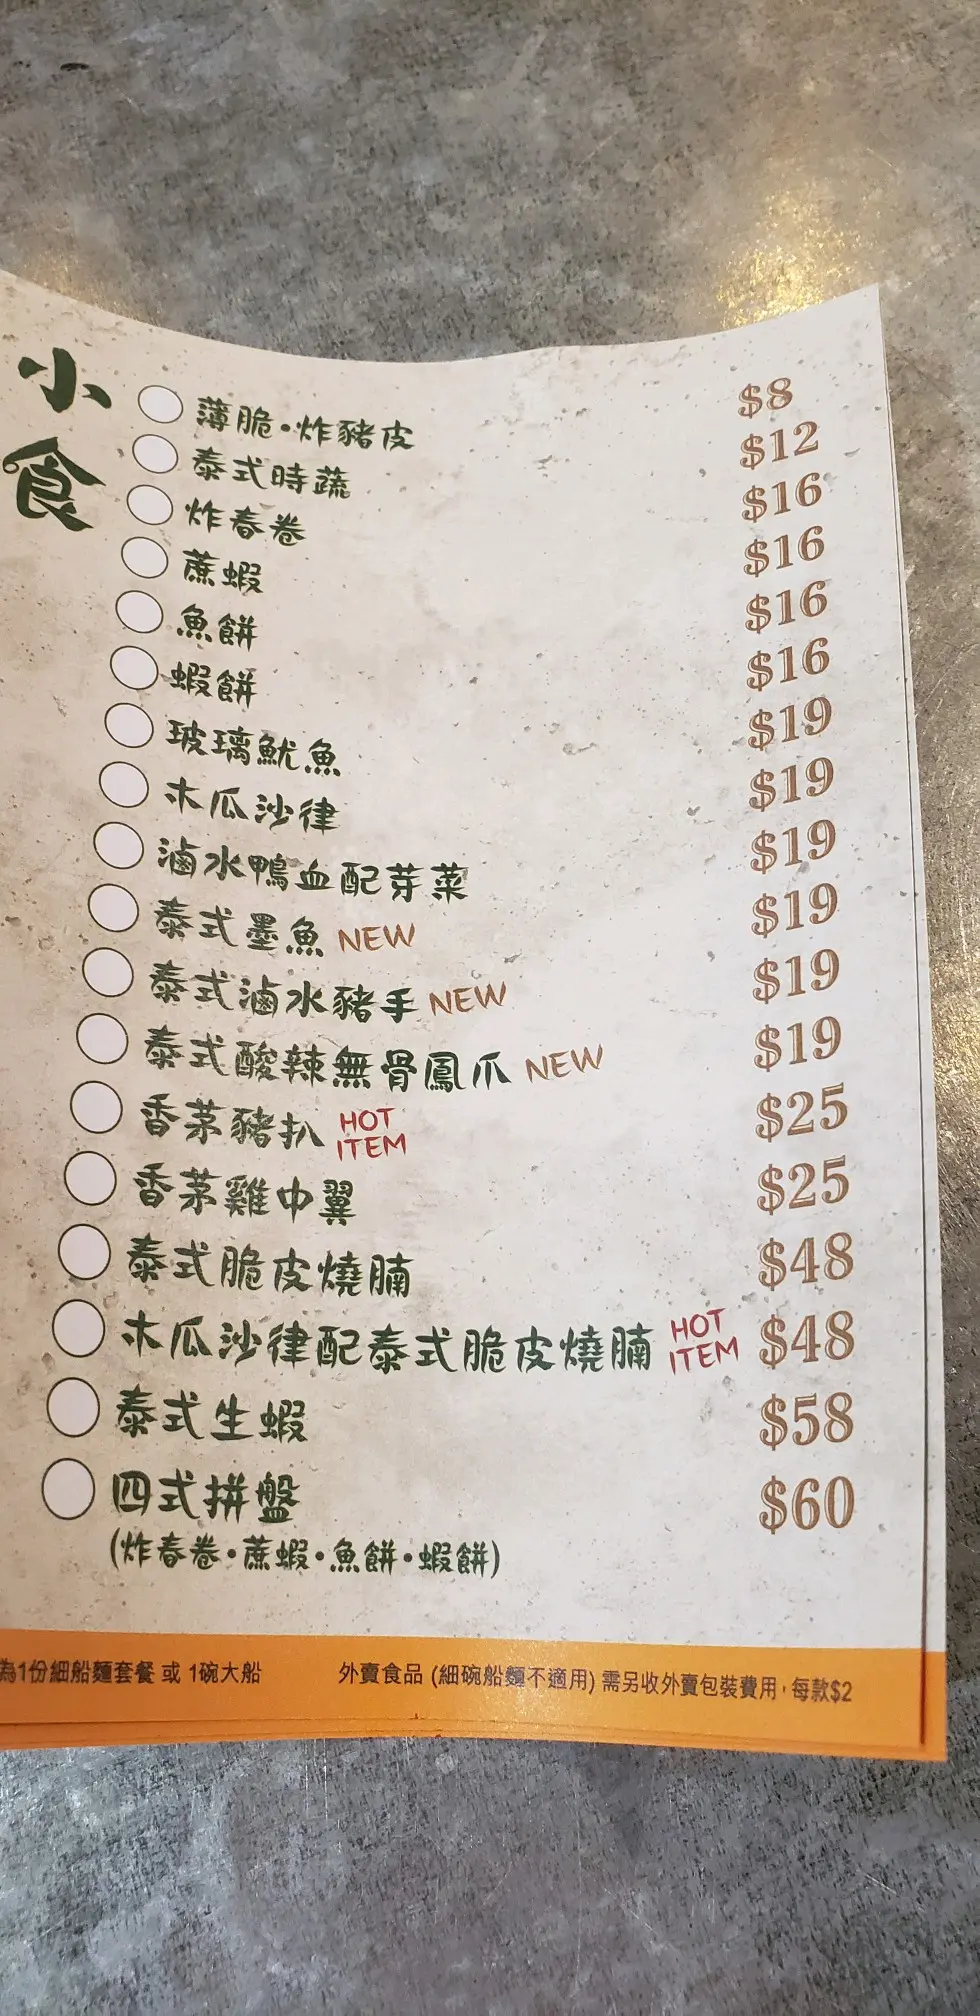 小食
薄脆·炸豬皮 $8
泰式時蔬 $12
炸春卷 $16
蔗蝦 $16
魚餅 $16
蝦餅 $16
玻璃魷魚 $19
木瓜沙律 $19
滷水鴨血配芽菜 $19
泰式墨魚 NEW $19
泰式滷水豬手 NEW $19
泰式酸辣無骨鳳爪 NEW $19
香茅豬扒 HOT ITEM $25
香茅雞中翼 $25
泰式脆皮燒腩 $48
木瓜沙律配泰式脆皮燒腩 HOT ITEM $48
泰式生蝦 $58
四式拼盤 $60
(炸春卷·蔗蝦·魚餅·蝦餅)
為1份細船麵套餐 或 1碗大船 外賣食品 (細碗船麵不適用) 需另收外賣包裝費用，每款$2